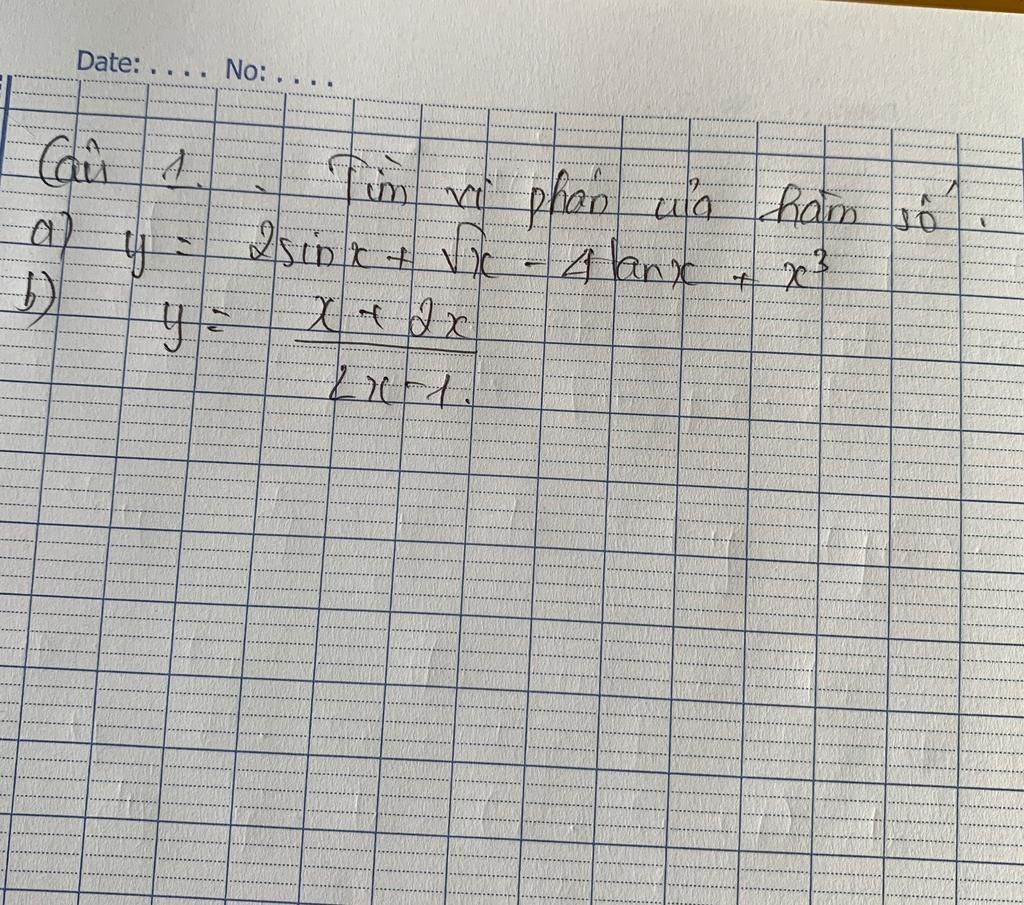 Date: .... No: ....
Câu 1. Tìm vi phân của hàm số.
a) y = 2sinx + √x - 4tanx + x³
b) y = (x + 2x)/(2x-1).